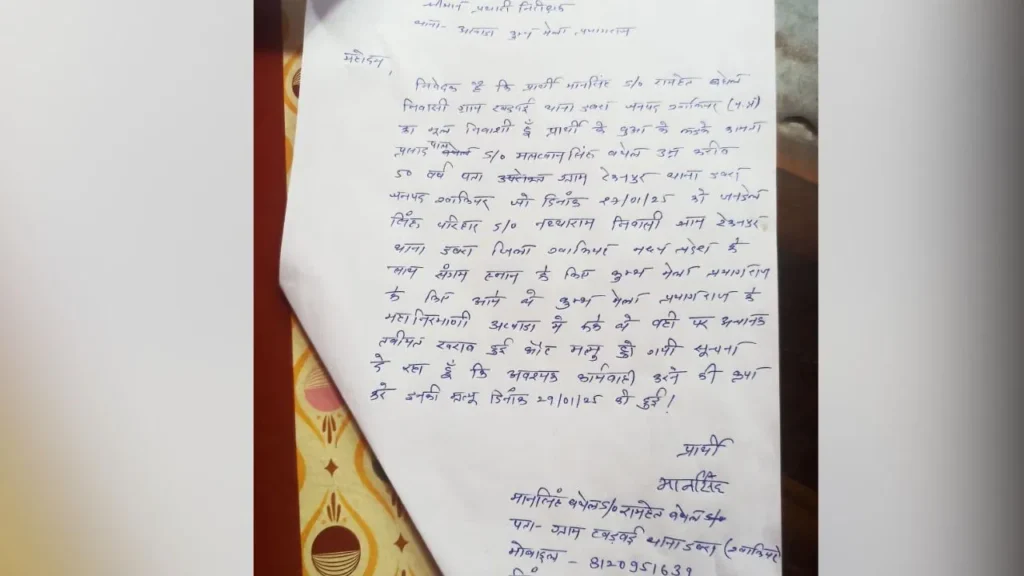 श्रीमान प्रभारी निरीक्षक
थाना- अखाडा कुम्भ मेला प्रयागराज
महोदय,
निवेदन है कि प्रार्थी मानसिंह S/O रामहेत बघेल
निवासी ग्राम थाना डबरा जनपद ग्वालियर (म.प्र)
का मूल निवासी हूँ प्रार्थी के बुआ के लडके कामता
प्रसाद पाल S/O मलखान सिंह बघेल उम्र करीब
50 वर्ष पता ग्राम टेकनपुर थाना डबरा
जनपद ग्वालियर जो दिनाँक 27/01/25 को जनवेद
सिंह परिहार S/O नथ्थाराम निवासी ग्राम टेकनपुर
थाना डबरा जिला ग्वालियर मध्य प्रदेश के
साथ संगम स्नान के लिए कुम्भ मेला प्रयागराज
के लिए आये थे कुम्भ मेला प्रयागराज के
महानिरमाणी अखाडा मे रुके थे वही पर अचानक
तबीयत खराब हुई और मत्यु हो गयी सूचना
दे रहा हूँ कि अवश्यक कार्यवाही करने की कृपा
करे इनकी मृत्यू दिनाँक 29/01/25 को हुई!
प्रार्थी
मानसिंह
मानसिंह बघेल S/o रामहेत बघेल S/o
पता- ग्राम थाना डबरा (ग्वालियर
मोबाइल - 8120951639